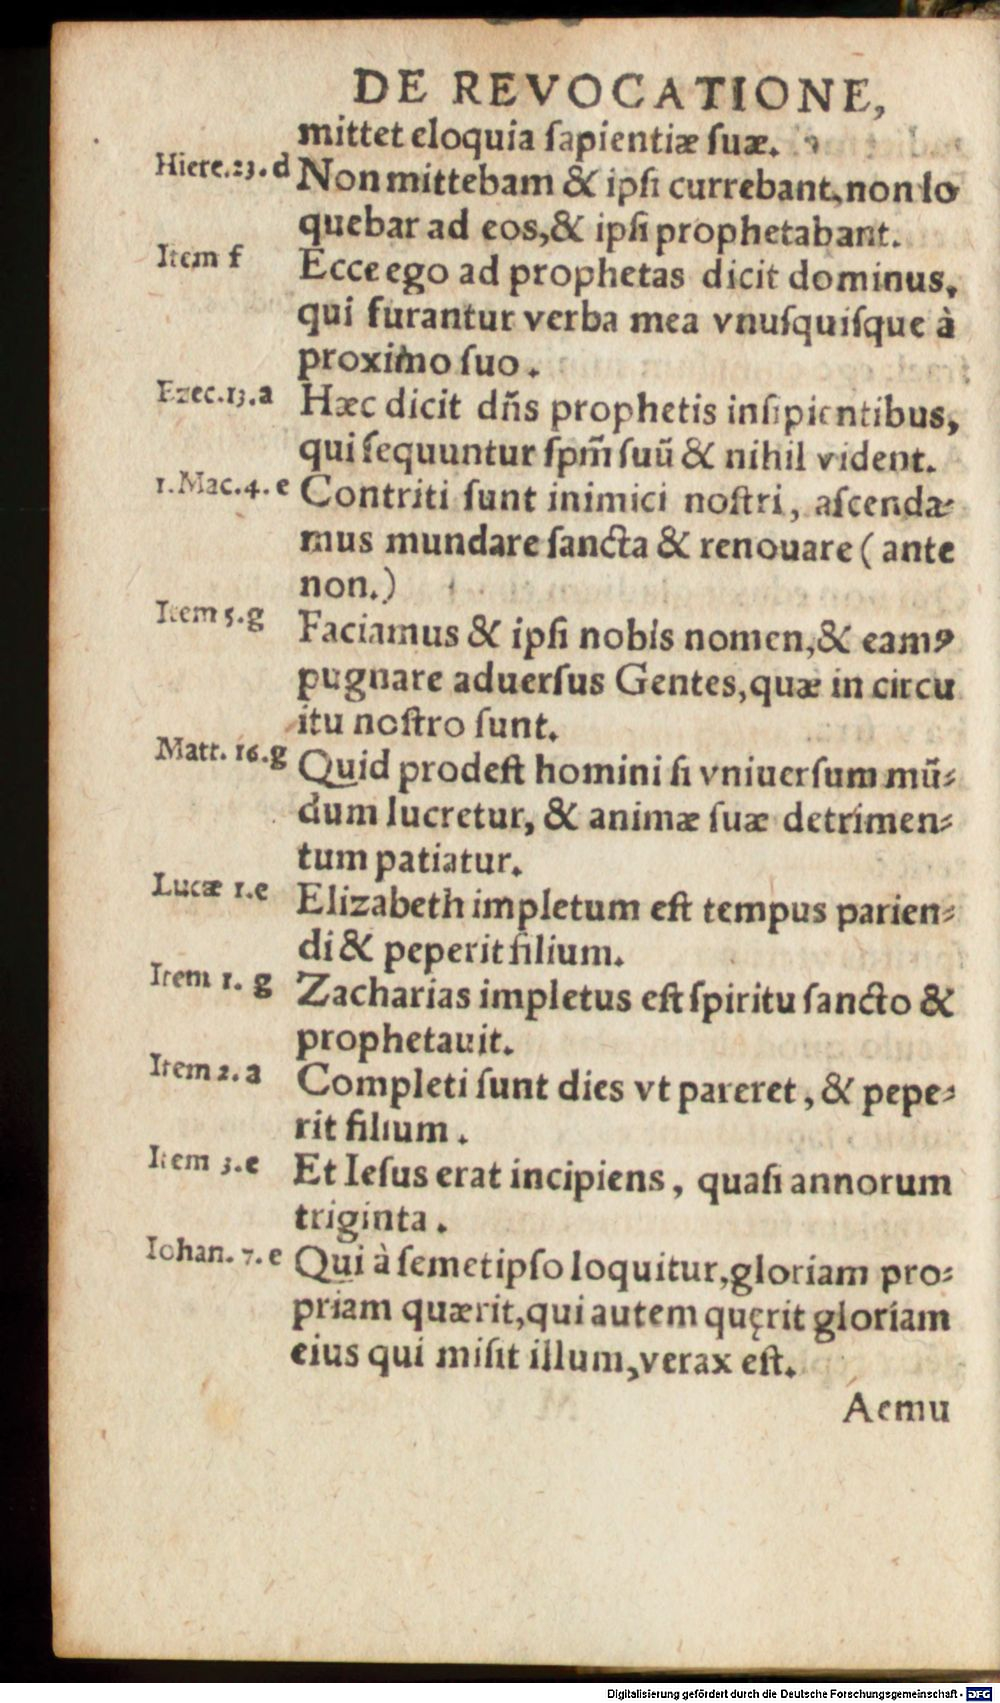 DE REVOCATIONE,
mittet eloquia ſapientiæ ſuæ.
Hiere.23.d Non mittebam & ipſi currebant, non lo
quebar ad eos, & ipſi prophetabant.
Item f Ecce ego ad prophetas dicit dominus,
qui furantur verba mea vnuſquiſque à
proximo ſuo.
Ezec.13.a Hæc dicit dñs prophetis inſipientibus,
qui ſequuntur ſpm̃ ſuũ & nihil vident.
1.Mac.4.e Contriti ſunt inimici noſtri, aſcenda⸗
mus mundare ſancta & renouare (ante
non.)
Item 5.g Faciamus & ipſi nobis nomen, & eamꝰ
pugnare aduerſus Gentes, quæ in circu
itu noſtro ſunt.
Matt. 16.g Quid prodeſt homini ſi vniuerſum mũ⸗
dum lucretur, & animæ ſuæ detrimen⸗
tum patiatur.
Lucæ 1.e Elizabeth impletum eſt tempus parien⸗
di & peperit filium.
Item 1. g Zacharias impletus eſt ſpiritu ſancto &
prophetauit.
Item 2.a Completi ſunt dies vt pareret, & pepe⸗
rit filium.
Item 3.e Et Ieſus erat incipiens, quaſi annorum
triginta.
Iohan. 7.e Qui à ſemetipſo loquitur, gloriam pro⸗
priam quærit, qui autem quęrit gloriam
eius qui miſit illum, verax eſt.
Aemu
Digitalisierung gefördert durch die Deutsche Forschungsgemeinschaft - DFG